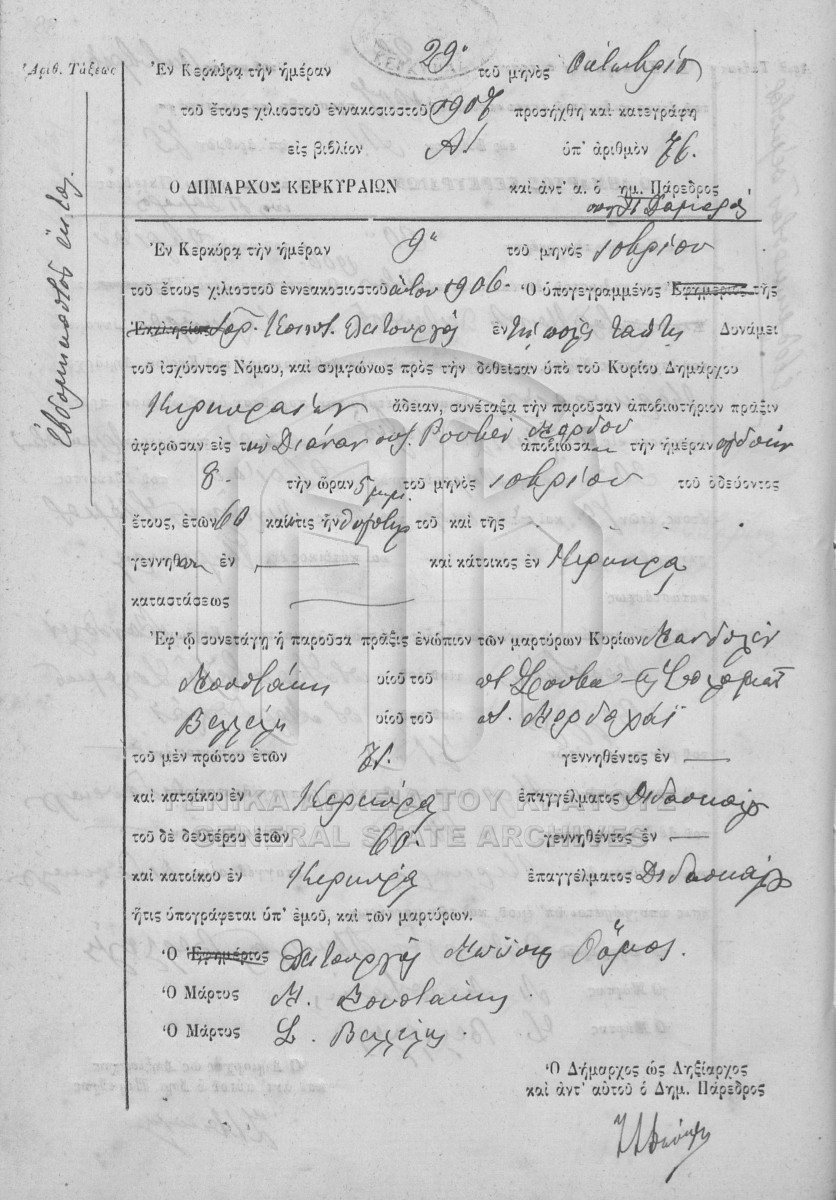 Ἀριθ. Τάξεως
Ἐν Κερκύρᾳ τὴν ἡμέραν 29 τοῦ μηνὸς Ὀκτωβρίου
τοῦ ἔτους χιλιοστοῦ ἐννακοσιοστοῦ 1907 προσήχθη καὶ κατεγράφη
εἰς βιβλίον Α/ ὑπ' ἀριθμὸν 76
Ο ΔΗΜΑΡΧΟΣ ΚΕΡΚΥΡΑΙΩΝ καὶ ἀντ' α. ὁ δημ. Πάρεδρος
ἑβδομηκοστὸν ἕκτον
Ἐν Κερκύρᾳ τὴν ἡμέραν 9 τοῦ μηνὸς 10βρίου
τοῦ ἔτους χιλιοστοῦ ἐννεακοσιοστοῦ ἕκτου 1906. Ὁ ὑπογεγραμμένος Ἐφημέριος τῆς
Ἐκκλησίας Ἰσρ. Κοινότ. Λειτουργὸς ἐν τῇ πόλει ταύτῃ Δυνάμει
τοῦ ἰσχύοντος Νόμου, καὶ συμφώνως πρὸς τὴν δοθεῖσαν ὑπὸ τοῦ Κυρίου Δημάρχου
Κερκυραίων ἄδειαν, συνέταξα τὴν παροῦσαν ἀποβιωτήριον πρᾶξιν
ἀφορῶσαν εἰς τὴν Διάναν συζ. Ρουβὲν Μάρδου ἀποβιώσασαν τὴν ἡμέραν ὀγδόην
8 τὴν ὥραν 5 μ.μ. τοῦ μηνὸς 10βρίου τοῦ ὁδεύοντος
ἔτους, ἐτῶν 60 καὶ ἥτις ἦν θυγάτηρ τοῦ καὶ τῆς
γεννηθεῖσαν ἐν — καὶ κάτοικος ἐν Κερκύρᾳ
καταστάσεως —
Ἐφ' ᾧ συνετάγη ἡ παροῦσα πρᾶξις ἐνώπιον τῶν μαρτύρων Κυρίων
Μουστάκη υἱοῦ τοῦ
Βελλέλη υἱοῦ τοῦ π. Μορδαχάϊ
τοῦ μὲν πρώτου ἐτῶν γεννηθέντος ἐν —
καὶ κατοίκου ἐν Κερκύρᾳ ἐπαγγέλματος Διδασκάλου
τοῦ δὲ δευτέρου ἐτῶν 60 γεννηθέντος ἐν —
καὶ κατοίκου ἐν Κερκύρᾳ ἐπαγγέλματος Διδασκάλου
ἥτις ὑπογράφεται ὑπ' ἐμοῦ, καὶ τῶν μαρτύρων.
Ὁ Ἐφημέριος Λειτουργὸς
Ὁ Μάρτυς Μ. Μουστάκης
Ὁ Μάρτυς Σ. Βελλέλης
Ὁ Δήμαρχος ὡς Ληξίαρχος
καὶ ἀντ' αὐτοῦ ὁ Δημ. Πάρεδρος
ΓΕΝΙΚΑ ΑΡΧΕΙΑ ΤΟΥ ΚΡΑΤΟΥΣ
GENERAL STATE ARCHIVES